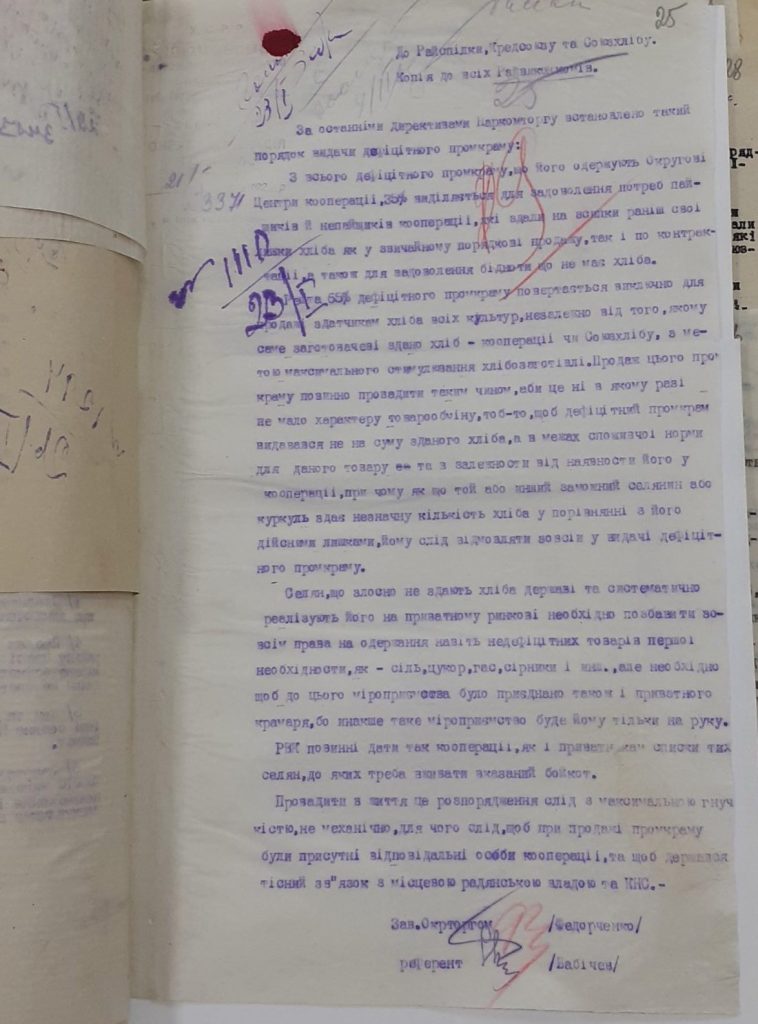 25
До Райспілки, Кредсоюзу та Союзхлібу.
Копія до всіх Райвиконкомів.
25
23/I
За останніми директивами Наркомторгу встановлено такий
порядок видачи дефіцітного промкраму:
З всього дефіцітного промкраму, що його одержують Округові
Центри кооперації, 35% виділяється для задоволення потреб пай-
щиків й непайщиків кооперації, які здали на всипки раніш свої
лишки хліба як у звичайному порядкові продажу, так і по контрак-
тації, а також для задоволення бідноти що не має хліба.
21/I-
3371
23/I
Решта 65% дефіцітного промкраму повертається виключно для
продажі здатчикам хліба всіх культур, незалежно від того, якому
саме заготовачеві здано хліб - кооперації чи Союзхлібу, з ме-
тою максимального стимулювання хлібозаготівлі. Продаж цього пром
краму повинно провадити таким чином, аби це ні в якому разі
не мало характеру товарообміну, тоб-то, щоб дефіцітний промкрам
видавався не на суму зданого хліба, а в межах споживчої норми
для даного товару та в залежности від наявности його у
кооперації, при чому як що той або инший заможний селянин або
куркуль здає незначну кількість хліба у порівнянні з його
дійсними лишками, йому слід відмовляти зовсім у видачі дефіціт-
ного промкраму.
Селян, що злосно не здають хліба державі та систематично
реалізують його на приватному ринкові необхідно позбавити зо-
всім права на одержання навіть недефіцітних товарів першої
необхідности, як - сіль, цукор, гас, сірники і инш., але необхідно
щоб до цього міроприємства було приєднано також і приватного
крамаря, бо инакше таке міроприємство буде йому тільки на руку.
РВК повинні дати так кооперації, як і приватникам списки тих
селян, до яких треба вживати вказаний бойкот.
Провадити в життя це розпорядження слід з максимальною гнуч
містю, не механічно, для чого слід, щоб при продажі промкраму
були присутні відповідальні особи кооперації, та щоб держався
тісний зв"язок з місцевою радянською владою та КНС.-
Зав.Окрторгом /Федорченко/
референт /Бабічев/